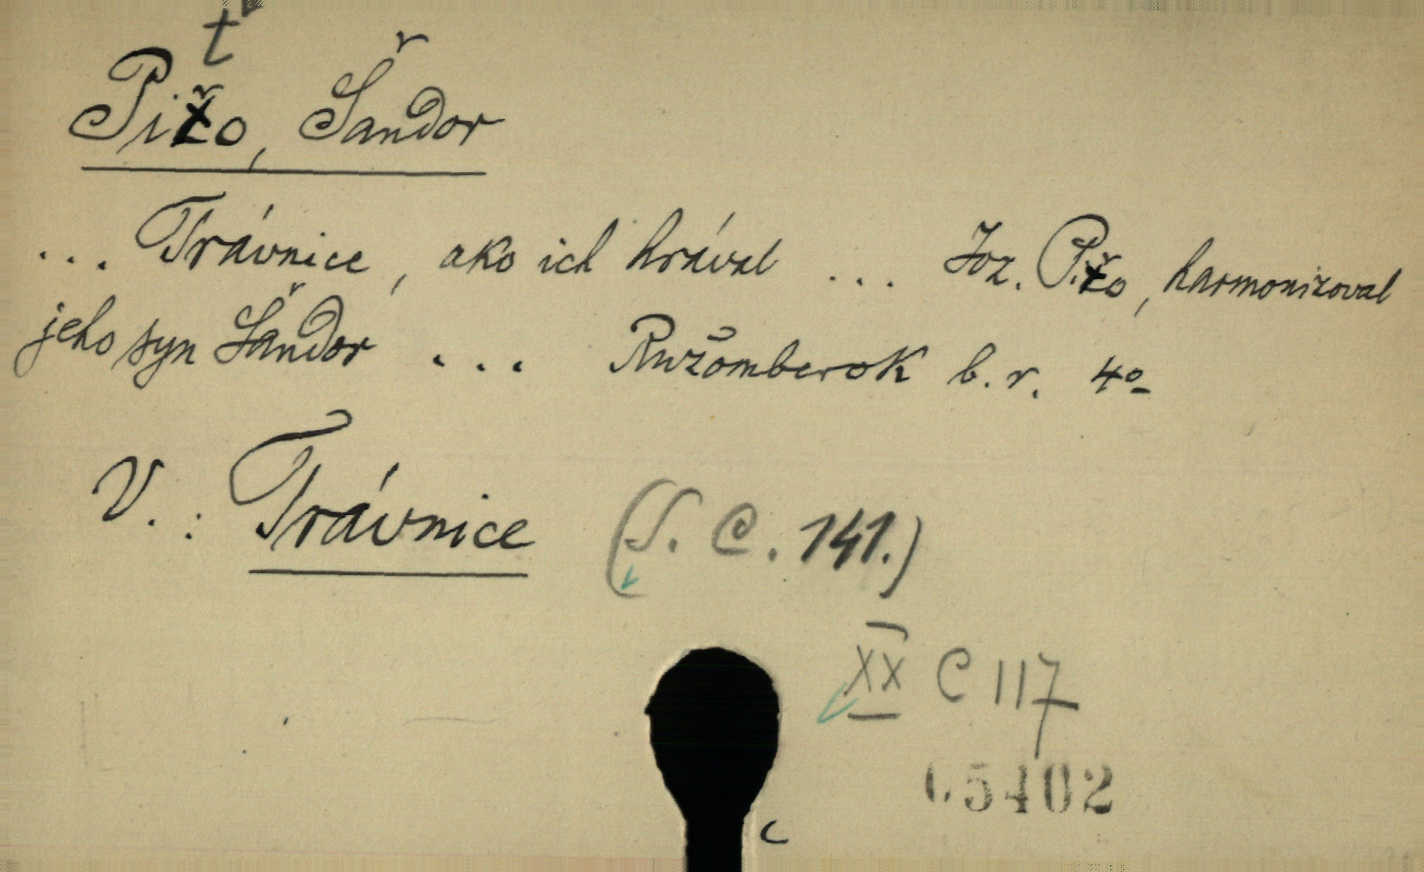 t
Pižo, Šandor
... Trávnice, ako ich hrával ... Joz. Pižo, harmonizoval
jeho syn Šandor ... Ružomberok b. r. 4o
V.: Trávnice (S. C. 141.)
XX C 117
5402
c